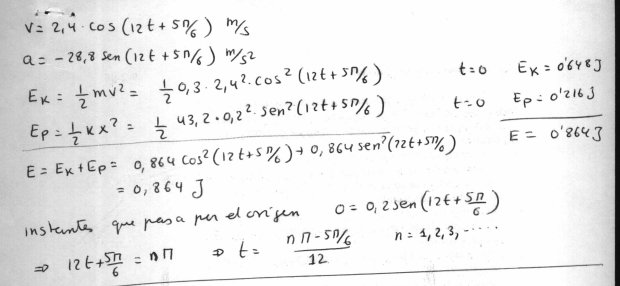 v = 2,4 · cos (12t + 5π/6) m/s
a = - 28,8 sen (12t + 5π/6) m/s2
Ek = 1/2 mv² = 1/2 0,3 · 2,4² · cos² (12t + 5π/6) t=0 Ek = 0'648 J
Ep = 1/2 kx² = 1/2 43,2 · 0,2² · sen² (12t + 5π/6) t=0 Ep = 0'216 J
E = Ek + Ep = 0,864 cos² (12t + 5π/6) + 0,864 sen² (12t + 5π/6) E = 0'864 J
= 0,864 J
instantes que pasa por el origen 0 = 0,2 sen (12t + 5π/6)
⇒ 12t + 5π/6 = nπ ⇒ t = (nπ - 5π/6)/12 n = 1, 2, 3, .....